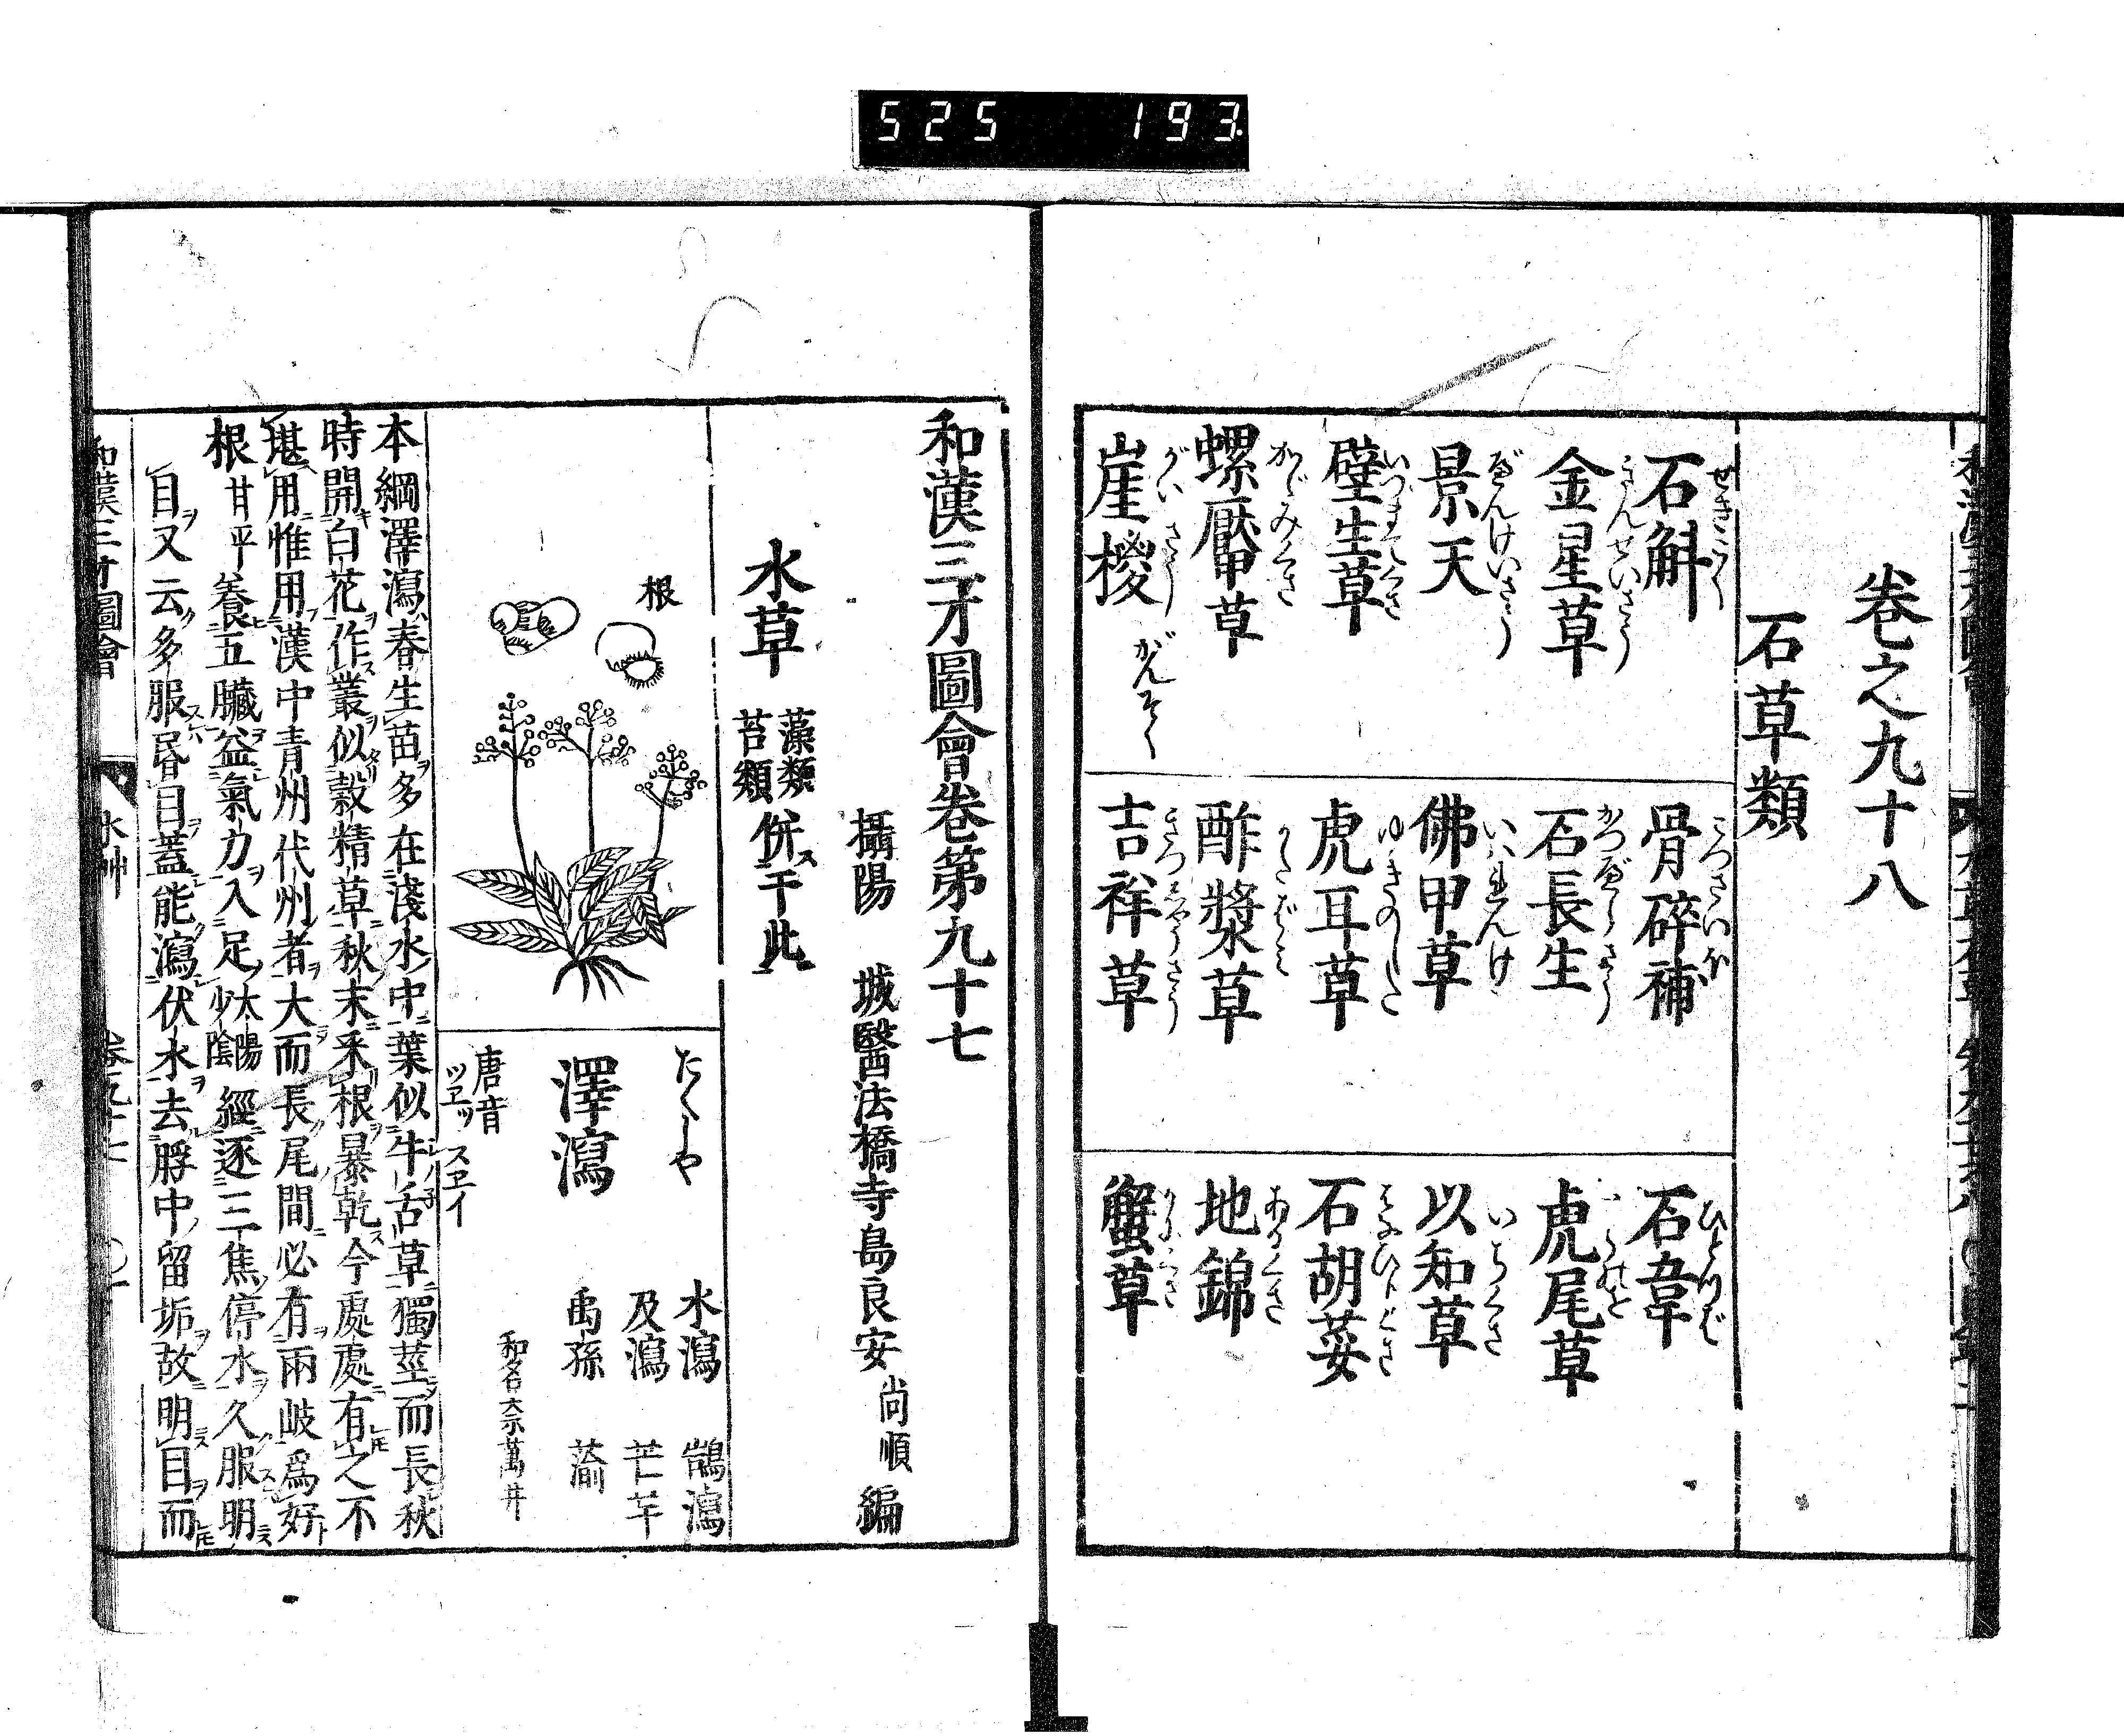 525 193
卷之九十八
石草類
石斛 せきこく
金星草 きんせいさう
景天 けいてん
壁生草 いつまでくさ
螺厴草 かゞみくさ
崖椶 がいさう がんそく
骨碎補 こつさいほ
石長生 かつべらさう
佛甲草 いはれんけ
虎耳草 ゆきのした
酢漿草 かたばみ
吉祥草 きつしやうさう
石韋 ひとつば
虎尾草 とらのを
以知草 いちくさ
石胡荽 はなひりくさ
地錦
蟹草 かにくさ
和漢三才圖會卷第九十七
攝陽 城醫法橋寺島良安 尚順 編
水草 藻類 苔類 併ス于此ニ
根
たくしや
澤瀉
唐音
ツヱツ スヱイ
水瀉 鵠瀉
及瀉 芒芋
禹孫 蕍
和名奈萬井
本綱澤瀉春生苗多在淺水中葉似牛舌草獨莖而長秋
時開白花作叢似穀精草秋末采根暴乾今處處有之不
堪用惟用漢中青州代州者大而長尾間必有兩歧爲好
根 甘平 養五臟益氣力入足太陽少陰經逐三焦停水久服明
目又云多服昏目蓋能瀉伏水去脬中留垢故明目而
和漢三才圖會 水艸 卷九十七